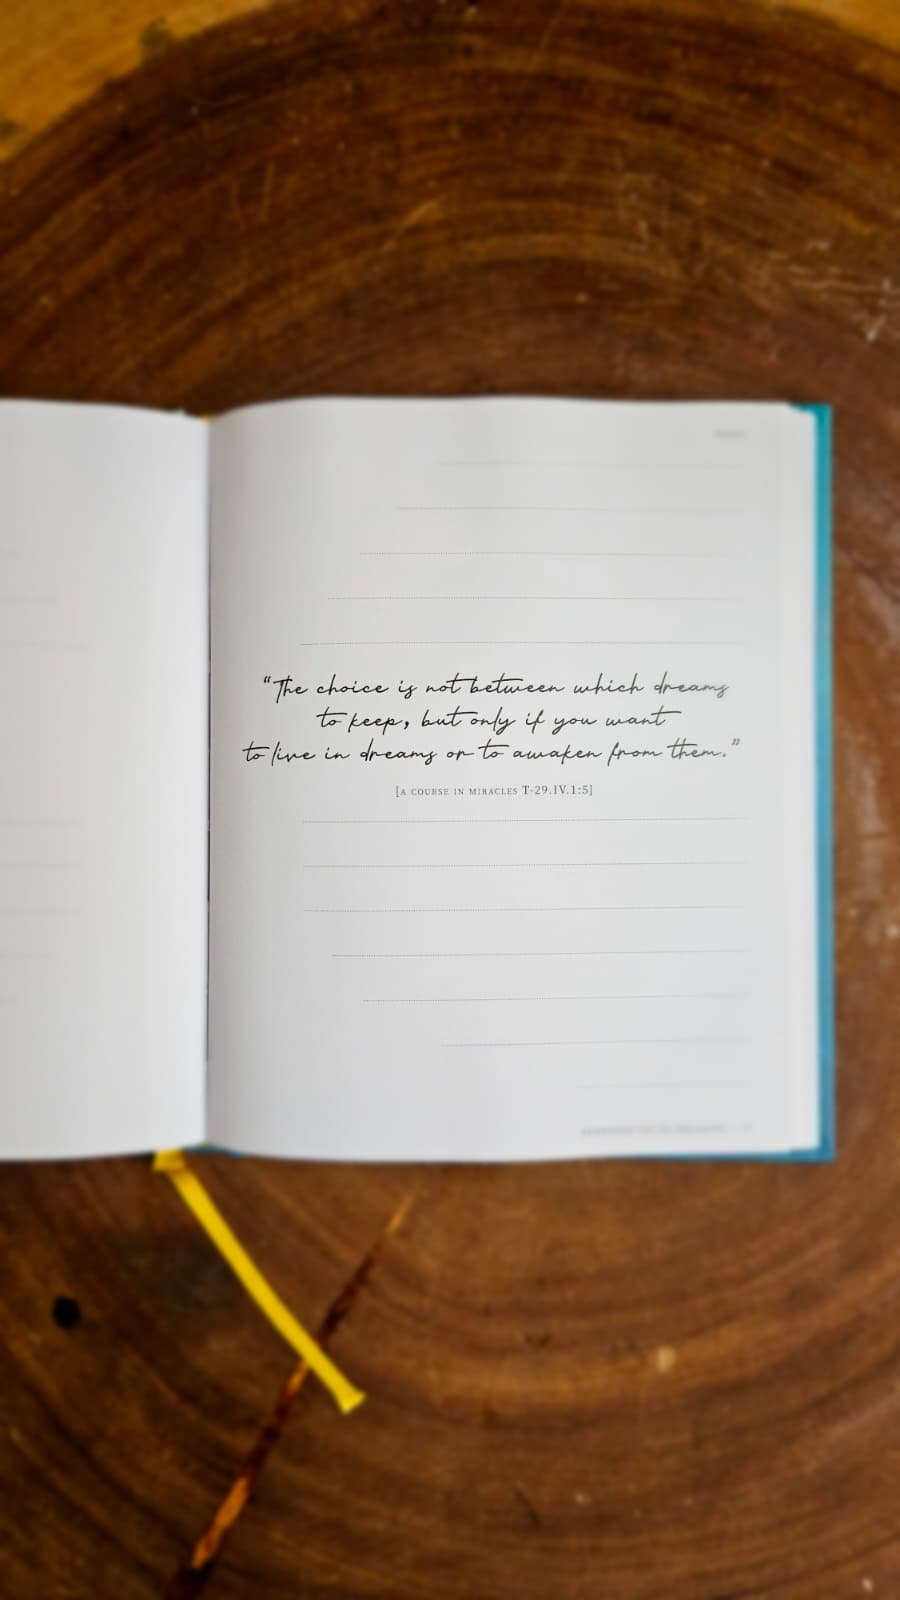 “The choice is not between which dreams
to keep, but only if you want
to live in dreams or to awaken from them.”
[A COURSE IN MIRACLES T-29.IV.1:5]